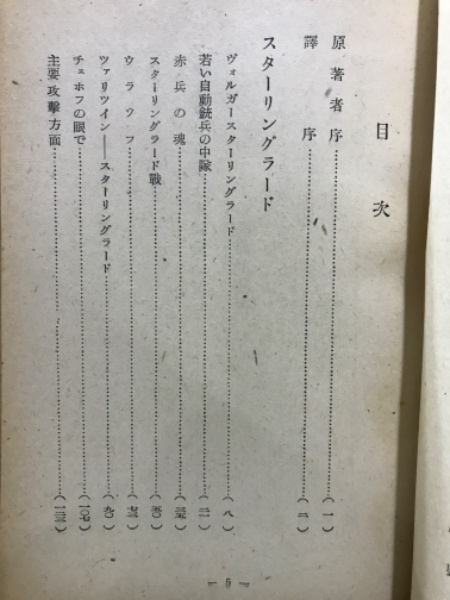 目次
原著者序……(一)
譯序……(二)
スターリングラード
ヴォルガースターリングラード……(八)
若い自動銃兵の中隊……(二一)
赤兵の魂……(三五)
スターリングラード戰……(五〇)
ウラソフ……(七三)
ツァリツイン——スターリングラード……(九〇)
チェホフの眼で……(一〇七)
主要攻擊方面……(一二三)
— 5 —